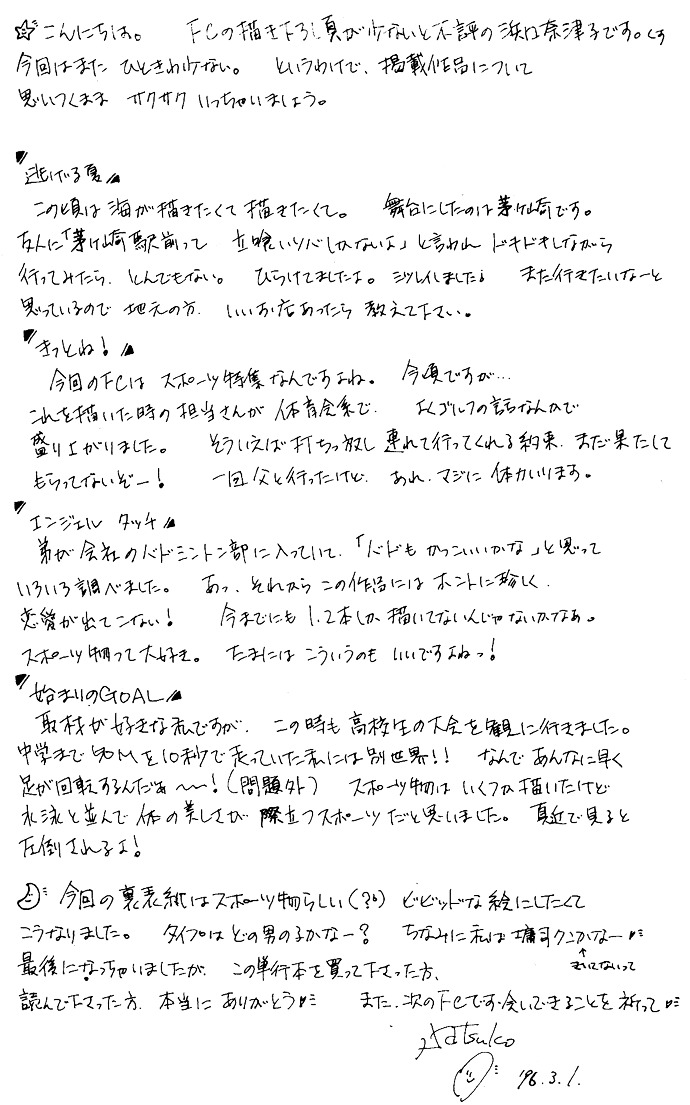 ☆こんにちは。 FCの描き下ろし頁が少ないと不評の浜口奈津子です。くす
今回はまた ひときわ少ない。 というわけで、掲載作品について
思いつくまま サクサク いっちゃいましょう。
〝逃げる夏〟
この頃は海が描きたくて描きたくて。 舞台にしたのは茅ヶ崎です。
友人に「茅ヶ崎駅前って 立喰いソバしかないよ」と言われ ドキドキしながら
行ってみたら、とんでもない。 ひらけてましたよ。シツレイしました。 また行きたいなーと
思っているので 地元の方、いいお店あったら 教えて下さい。
〝きっとね!〟
今回のFCは スポーツ特集なんですよね。 今頃ですが…
これを描いた時の担当さんが 体育会系で、 よくゴルフの話なんかで
盛り上がりました。 そういえば打ちっ放し 連れて行ってくれる約束、まだ果たして
もらってないぞー! 一回 父と行ったけど、 あれ、マジに 体力いります。
〝エンジェル タッチ〟
弟が会社のバドミントン部に入っていて、「バドも かっこいいかな」と思って
いろいろ調べました。 あっ、それから この作品には ホントに珍しく、
恋愛が出てこない! 今までにも 1、2本しか 描いてないんじゃないかなあ。
スポーツ物って大好き。 たまには こういうのも いいですよねっ!
〝始まりのGOAL〟
取材が好きな私ですが、 この時も 高校生の大会を観に行きました。
中学まで50Mを10秒で走っていた私には別世界!! なんで あんなに早く
足が回転するんだぁ〜〜!(問題外) スポーツ物は いくつか描いたけど
水泳と並んで 体の美しさが 際立つスポーツだと思いました。 真近で見ると
圧倒されるよ!
今回の裏表紙はスポーツ物らしい(?) ビビッドな絵にしたくて
こうなりました。 タイプはどの男の子かなー? ちなみに私は クンかなー
きいてないって
最後になっちゃいましたが、 この単行本を買って下さった方、
読んで下さった方、本当に ありがとう また、次のFCでお会いできることを祈って
Natsuko
'96.3.1.